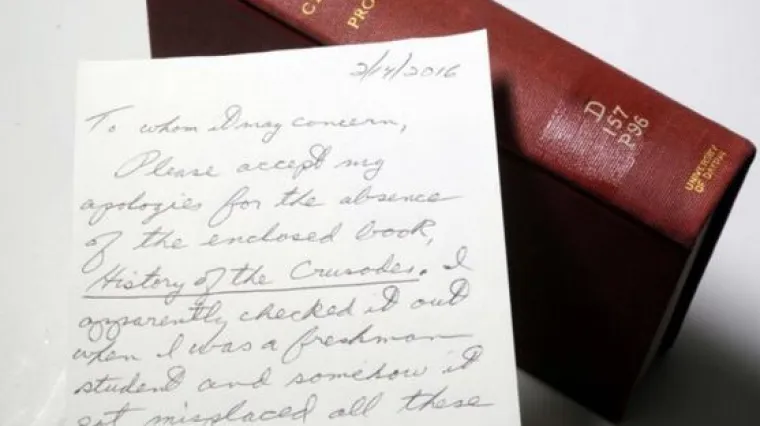 2/14/2016
To whom it may concern,
Please accept my
apologies for the absence
of the enclosed book,
History of the Crusades. I
apparently checked it out
when I was a freshman
student and somehow it
got misplaced all these
D
157
P96
UNIVERSITY
OF DAYTON